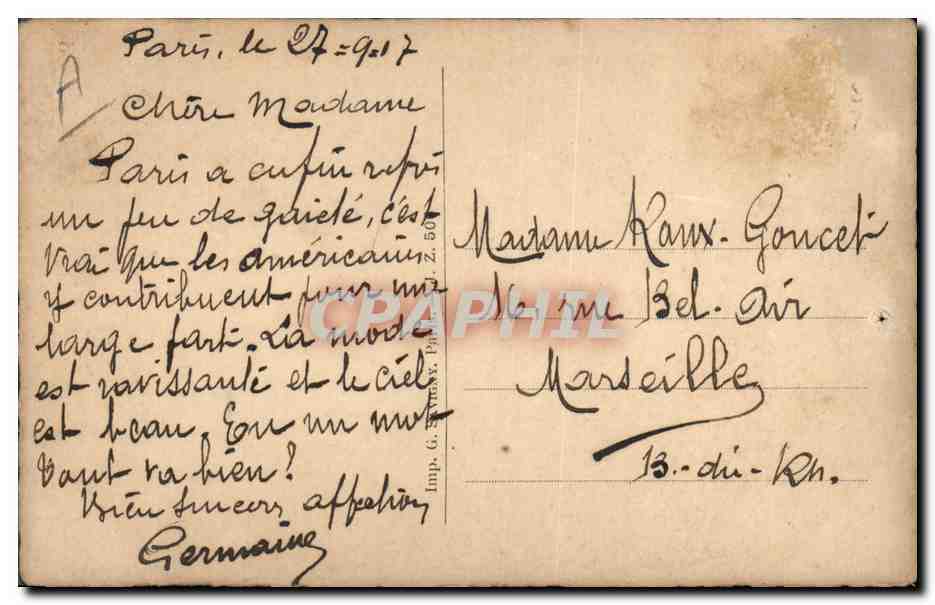 Paris, le 27-9-17
A
Chère Madame
Paris a enfin repris
un peu de gaieté, c'est
vrai que les américains
y contribuent pour une
large part. La mode
est ravissante et le ciel
est beau. En un mot
tout va bien!
Bien sincère affection
Germaine
Imp. G. SÉVIGNY, Paris. J. Z. 50
Madame Roux-Goucet
16, rue Bel-Air
Marseille
B.-du-Rh.
CPAPHIL